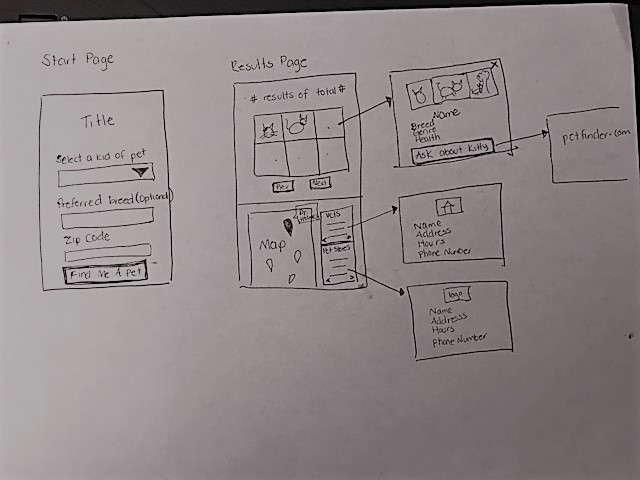 Start Page
Title
Select a kid of pet
Preferred breed (optional)
Zip Code
Find Me A Pet
Results Page
# results of total #
Prev Next
Map
Vets
Pet Stores
X
Name
Breed
Genre
Health
Ask about Kitty
petfinder.com
Name
Address
Hours
Phone Number
logo
Name
Addresss
Hours
Phone Number